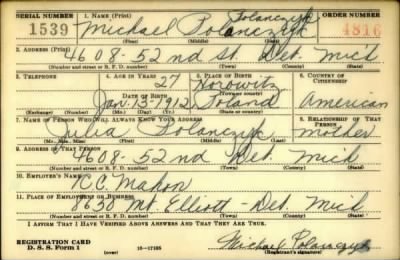 SERIAL NUMBER 1. NAME (Print) Polanczyk ORDER NUMBER
1539 Michael Polanczyk 4816
(First) (Middle) (Last)
2. ADDRESS (Print)
4608-52nd St Det. Mich
(Number and street or R. F. D. number) (Town) (County) (State)
3. TELEPHONE 4. AGE IN YEARS 5. PLACE OF BIRTH 6. COUNTRY OF CITIZENSHIP
27
DATE OF BIRTH
Jan-13-1912 Poland American
(Exchange) (Number) (Mo.) (Day) (Yr.) (State or country)
7. NAME OF PERSON WHO WILL ALWAYS KNOW YOUR ADDRESS 8. RELATIONSHIP OF THAT PERSON
Julia Polanczyk mother
(Mr., Mrs., Miss) (First) (Middle) (Last)
9. ADDRESS OF THAT PERSON
4608-52nd Det. Mich
(Number and street or R. F. D. number) (Town) (County) (State)
10. EMPLOYER'S NAME
R.C. Mahon
11. PLACE OF EMPLOYMENT OR BUSINESS
8650 Mt. Elliott - Det. Mich
(Number and street or R. F. D. number) (Town) (County) (State)
I AFFIRM THAT I HAVE VERIFIED ABOVE ANSWERS AND THAT THEY ARE TRUE.
REGISTRATION CARD
D. S. S. Form 1 (over) Michael Polanczyk
(Registrant's signature)